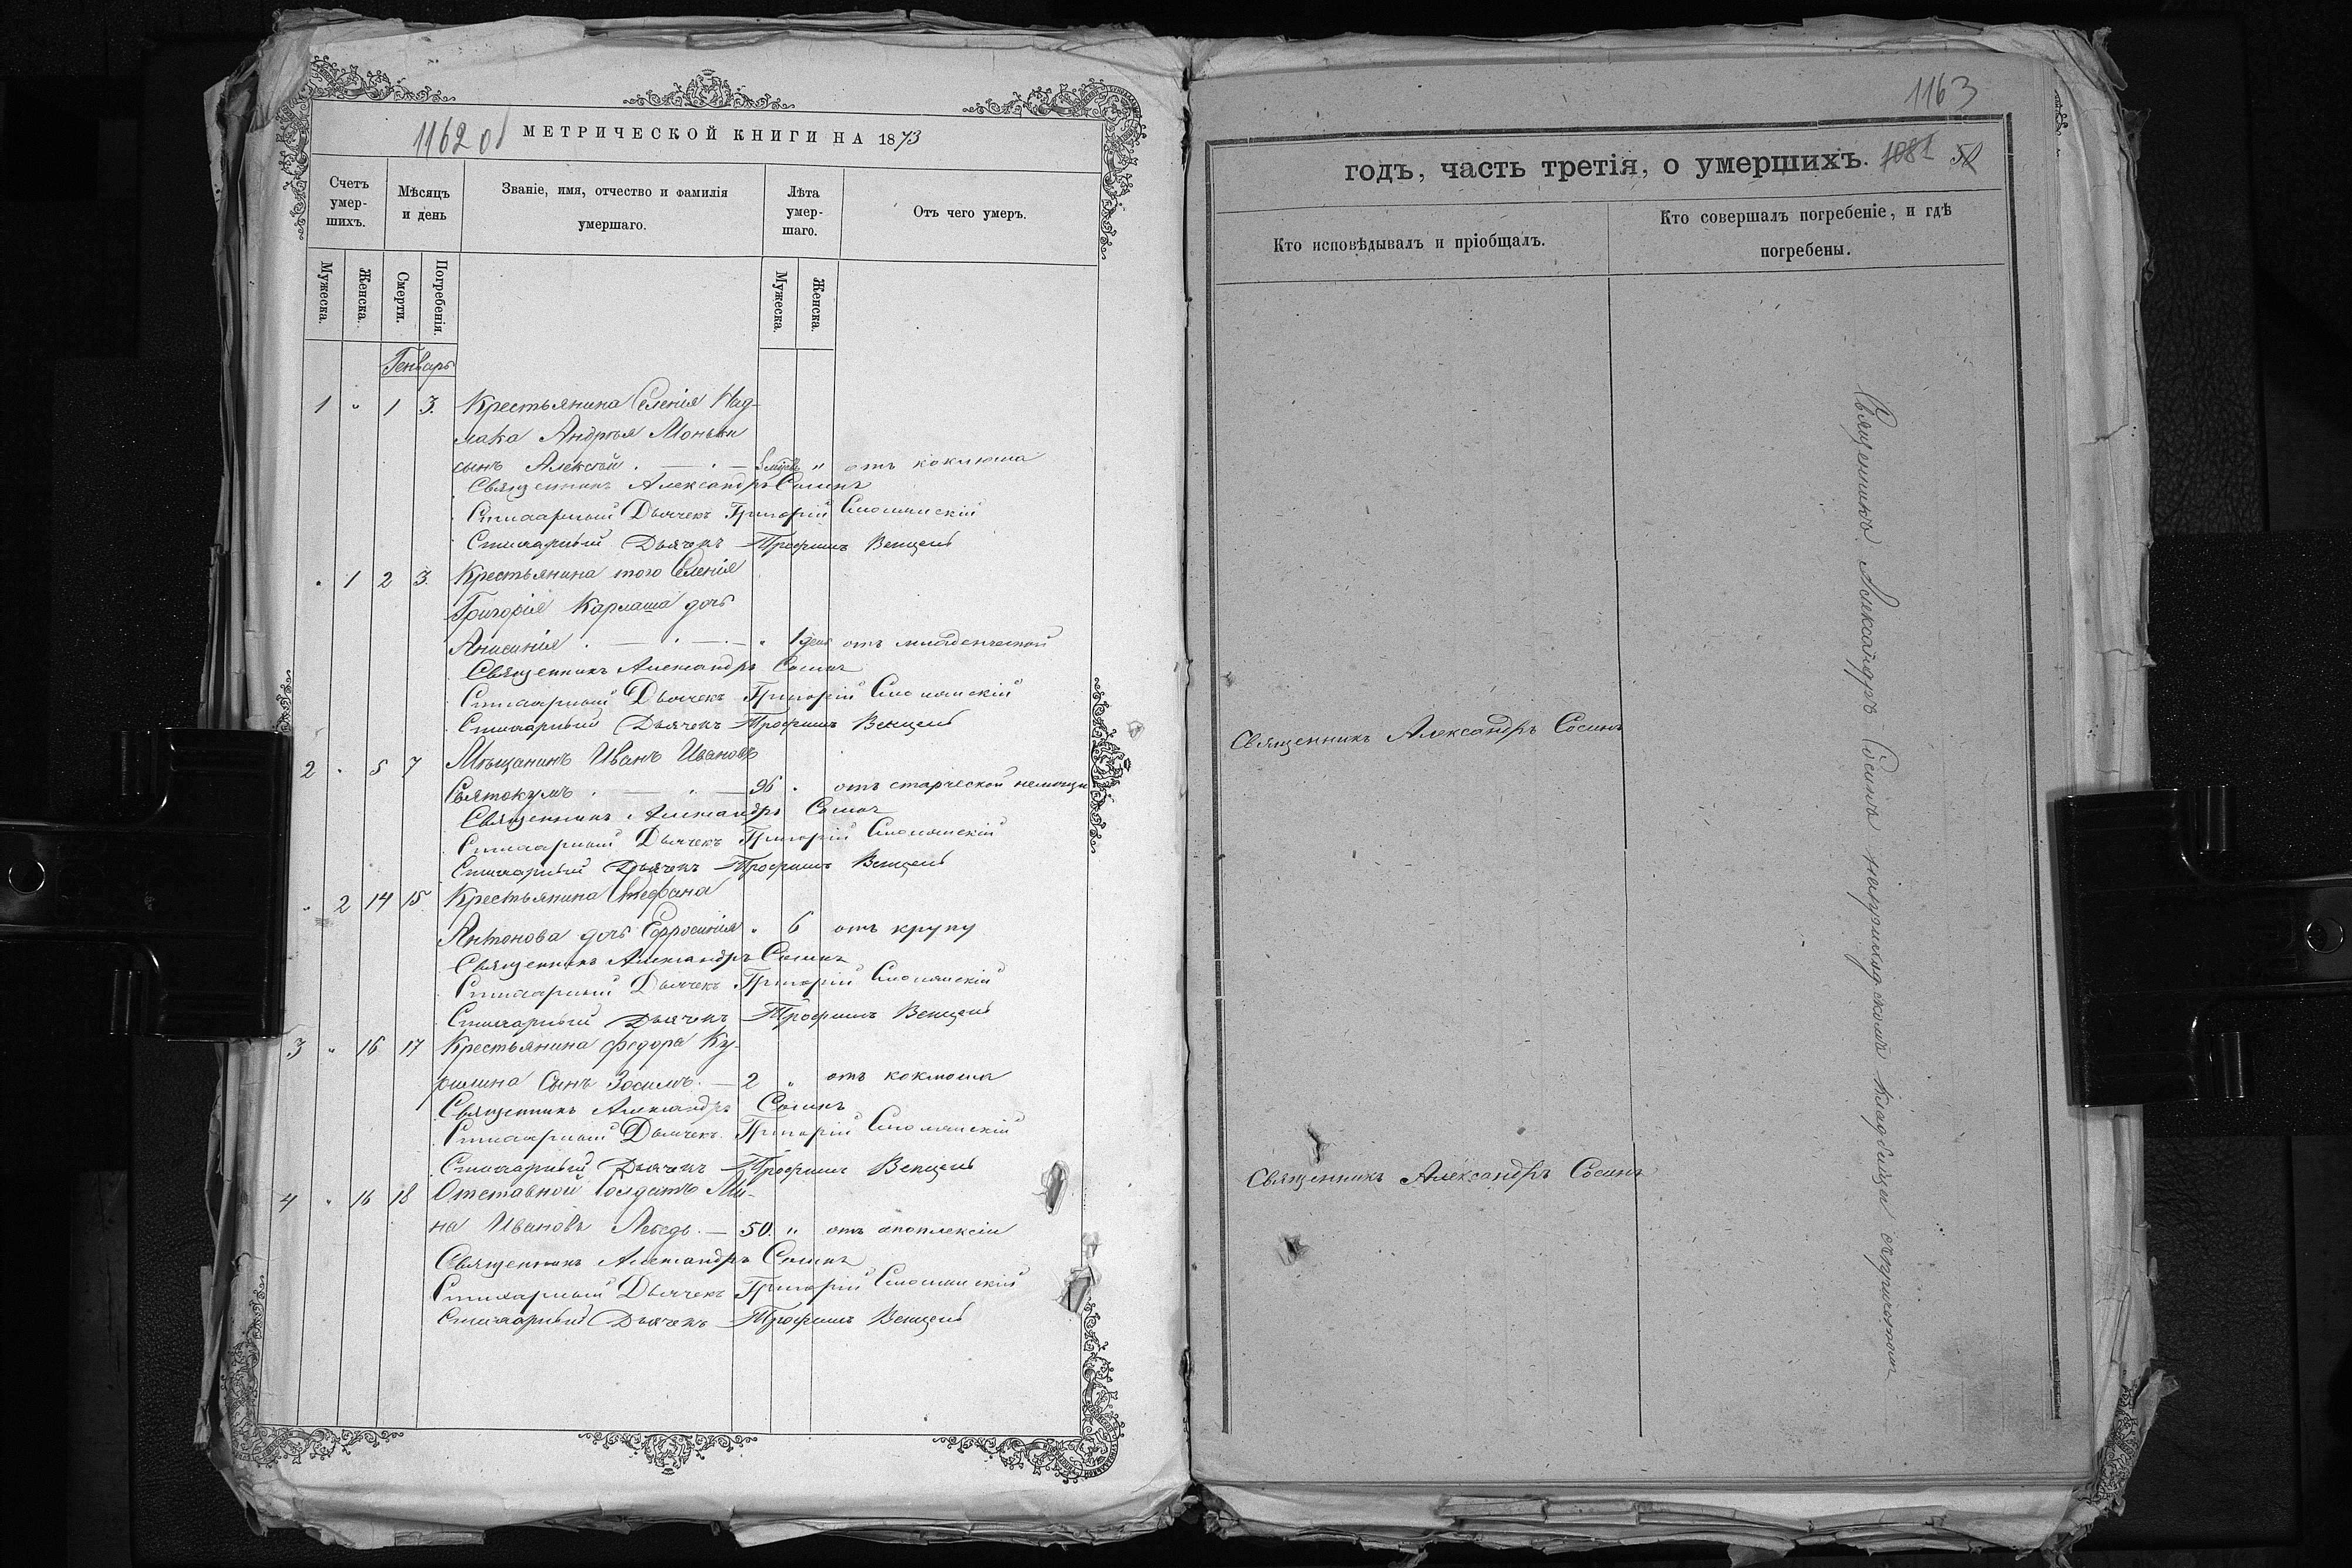 1162 об
МЕТРИЧЕСКОЙ КНИГИ НА 1873
Счетъ умер-шихъ.
Мѣсяцъ и день
Званіе, имя, отчество и фамилія умершаго.
Лѣта умер-шаго.
Отъ чего умеръ.
Мужеска.
Женска.
Смерти.
Погребенія.
Мужеска.
Женска.
Генварь
1 " 1 3. Крестьянина Селенія Над-
лака Андрея
сынъ Алексѣй " отъ коклюша
Священникъ Александръ Сосинъ
Стихарный Дьячекъ Григорій
Стихарный Дьячекъ Трофимъ Венцель
" 1 2 3. Крестьянина того Селенія
Григорія Карлаша дочь
Анисинія " 1 дня отъ младенческой
Священникъ Александръ Сосинъ
Стихарный Дьячекъ Григорій
Стихарный Дьячекъ Трофимъ Венцель
2 " 5 7 Мѣщанинъ Иванъ Ивановъ
96 " отъ старческой немощи
Священникъ Александръ Сосинъ
Стихарный Дьячекъ Григорій
Стихарный Дьячекъ Трофимъ Венцель
" 2 14 15 Крестьянина Стефана
Антонова дочь Ефросинія " 6 отъ крупу
Священникъ Александръ Сосинъ
Стихарный Дьячекъ Григорій
Стихарный Дьячекъ Трофимъ Венцель
3 " 16 17 Крестьянина Федора Ку-
рилина Сынъ Зосимъ 2 " отъ коклюша
Священникъ Александръ Сосинъ
Стихарный Дьячекъ Григорій
Стихарный Дьячекъ Трофимъ Венцель
4 " 16 18 Отставной Солдатъ Ми-
на Ивановъ Лебедь 50. " отъ апоплексіи
Священникъ Александръ Сосинъ
Стихарный Дьячекъ Григорій
Стихарный Дьячекъ Трофимъ Венцель
1163
годъ, часть третія, о умершихъ. 1081
Кто исповѣдывалъ и пріобщалъ.
Кто совершалъ погребеніе, и гдѣ погребены.
Священникъ Александръ Сосинъ
Священникъ Александръ Сосинъ
Священникъ Александръ Сосинъ на приходскомъ кладбищи съ причтомъ